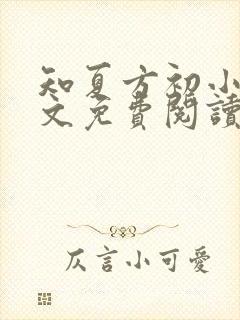 知夏方初小
文免費閱讀
仄言小可愛